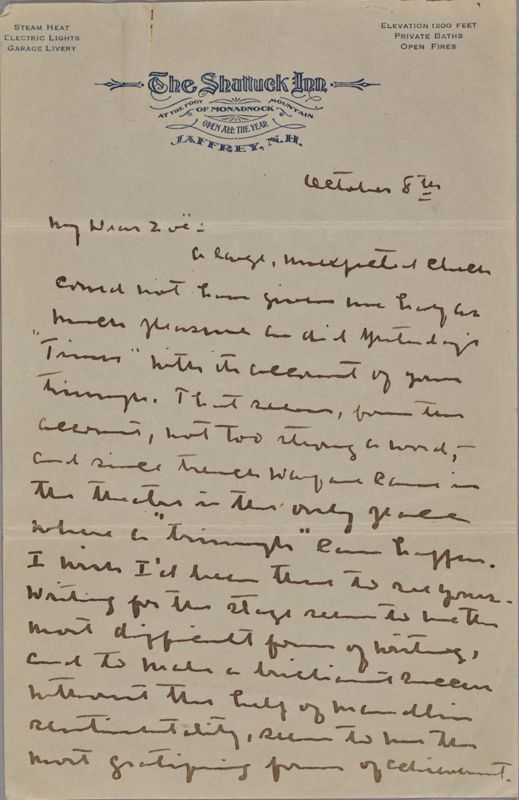 STEAM HEAT
ELECTRIC LIGHTS
GARAGE LIVERY
ELEVATION 1200 FEET
PRIVATE BATHS
OPEN FIRES
The Shattuck Inn
AT THE FOOT OF MONADNOCK MOUNTAIN
OPEN ALL THE YEAR
JAFFREY, N.H.
October 8th
My Dear Zoë:
A large, unexpected check
could not have given me half as
much pleasure as did yesterday's
"Times" with its account of your
triumph. That seems, from the
account, not too strong a word,—
and since trench warfare came in
the theatre is the only place
where a "triumph" can happen.
I wish I'd been there to see yours.
Writing for the stage seems to me the
most difficult form of writing,
and to make a brilliant success
without the help of maudlin
sentimentality, seems to me the
most gratifying form of achievement.